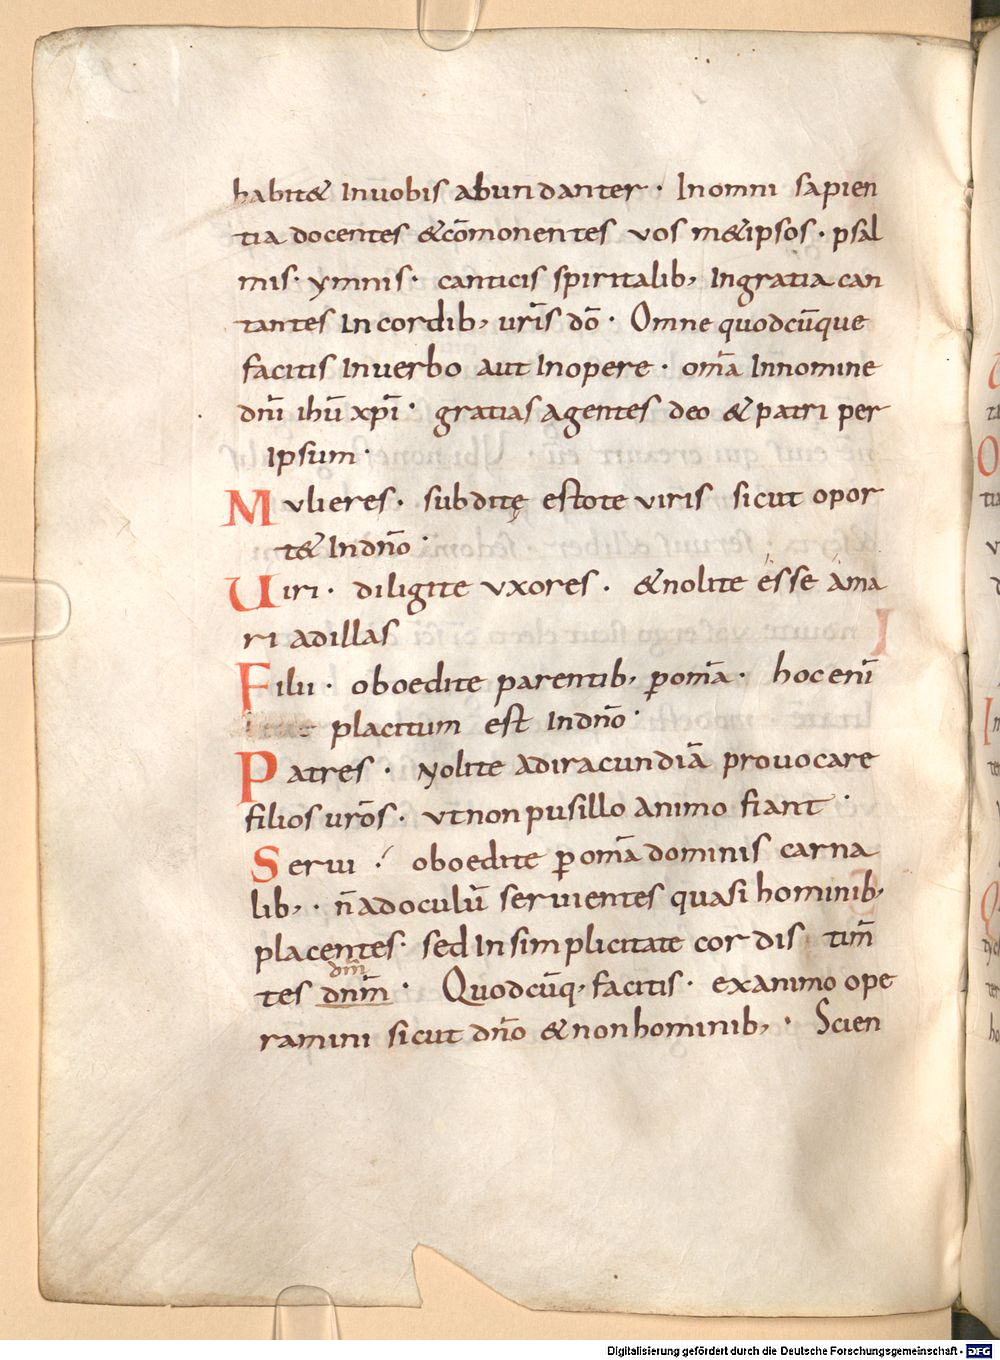 habit& Inuobis abundanter · In omni sapien
tia docentes &cōmonentes vos m&ipsos · psal
mis · ymnis · canticis spiritalib, Ingratia can
tantes In cordib, ur̄is dō · Omne quodcūque
facitis Inuerbo aut Inopere · om̄a Innomine
dn̄i ihū xp̄i · gratias agentes deo & patri per
Ipsum ·
Mulieres · subditę estote viris sicut opor
t& Indn̄o ·
Uiri · diligite vxores · &nolite esse ama
ri adillas
Filii · oboedite parentib, p̱ om̄a · hoc enī
placitum est Indn̄o ·
Patres · Nolite adiracundiā prouocare
filios urōs · vt non pusillo animo fiant ·
Serui · oboedite p̱ om̄a dominis carna
lib, · n̄ adoculū seruientes quasi hominib,
placentes · sed In simplicitate cordis tim̄
dm̄
tes dnm̄ · Quodcūq, facitis · exanimo ope
ramini sicut dn̄o & non hominib, · Scien
Digitalisierung gefördert durch die Deutsche Forschungsgemeinschaft - DFG